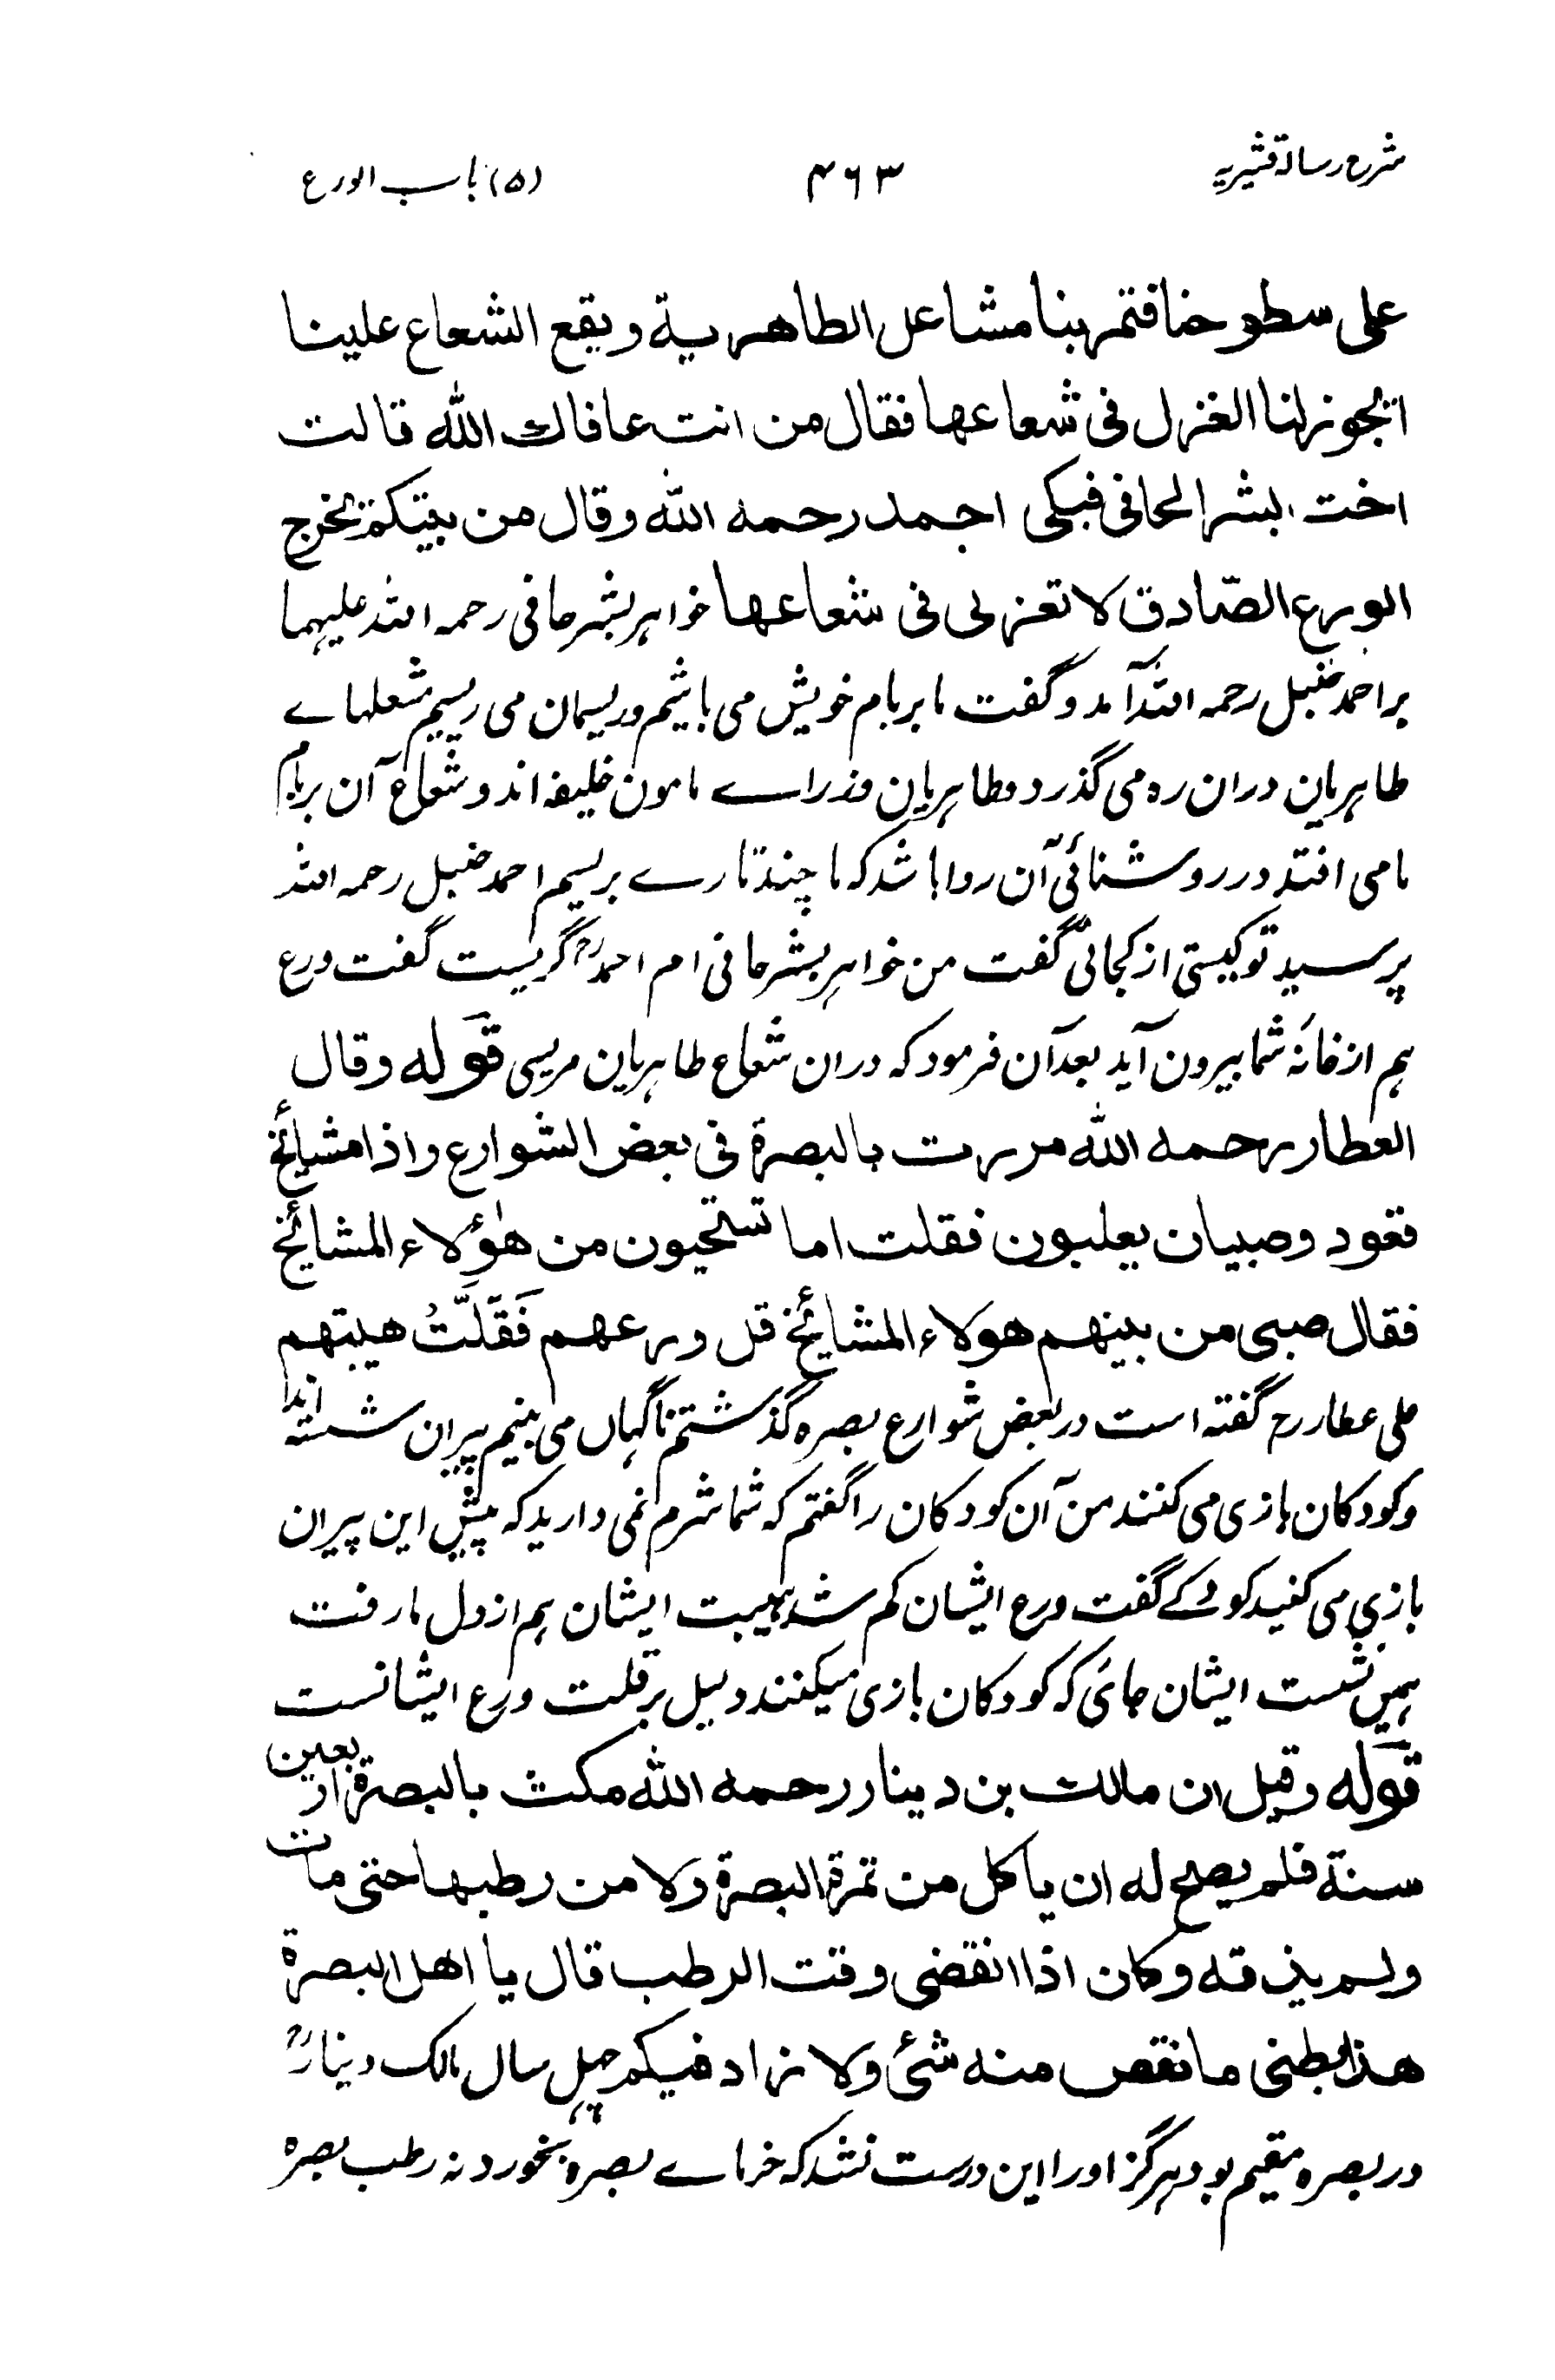 شرح رسالة قشیریه ۴۶۳ (۵) باب الورع
علی سطوحنا فتمر بنا مشاعل الطاهریة ویقع الشعاع علینا
ایجوز لنا الغزل فی شعاعها فقال من انت عافاك الله قالت
اخت بشر الحافی فبکی احمد رحمه الله وقال من بیتکم یخرج
الورع الصّادق لا تغزلی فی شعاعها خواہر بشر حافی رحمہ اللہ علیہما
بر احمد حنبل رحمہ اللہ آمد و گفت ما بر بام خویش می باشیم و ریسمان می ریسیم شعلہاے
طاہریان دران رہ می گذرد و طاہریان وزراے مامون خلیفہ اند و شعاع آن بر بام
ما می افتد در روشنائیِ آن روا باشد کہ ما چند تارے بریسیم احمد حنبل رحمہ اللہ
پرسید تو کیستی از کجائی گفت من خواہر بشر حافی ام احمدؒ گریست گفت ورع
ہم از خانۂ شما بیرون آید بعد آن فرمود کہ دران شعاع طاہریان مریسی قوله وقال
العطار رحمه الله مررت بالبصرة فی بعض الشوارع واذا مشایئخ
قعود وصبیان یعلبون فقلت اما تستحیون من هٰؤلاء المشائخ
فقال صبی من بینهم هولاء المشایئخ قل ورعهم فَقَلَّتُ هیبتهم
علی عطار رح گفتہ است در بعض شوارع بصرہ گذشتم ناگہاں می بینم پیران شستہ اند
و کودکان بازی می کنند من آن کودکان را گفتم کہ شما شرم نمی دارید کہ پیش این پیران
بازی می کنید کودکے گفت ورع ایشان کم شد ہیبت ایشان ہم از دل ما رفت
ہمیں نشست ایشان جائ کہ کودکان بازی میکنند دلیل بر قلت ورع ایشانست
قوله وقیل ان مالك بن دینار رحمه الله مکث بالبصرة اربعین
سنة فلم یصح له ان یاکل من تمرة البصرة ولا من رطبها حتی مات
ولم یذقه وکان اذا انقضی وقت الرطب قال یا اهل البصرة
هذا بطنی ما نقص منه شئ ولا زاد فیکم چہل سال مالک دینارؒ
در بصرہ مقیم بود ہرگز او را این درست نشد کہ خرماے بصرہ بخورد نہ رطب بصرہ